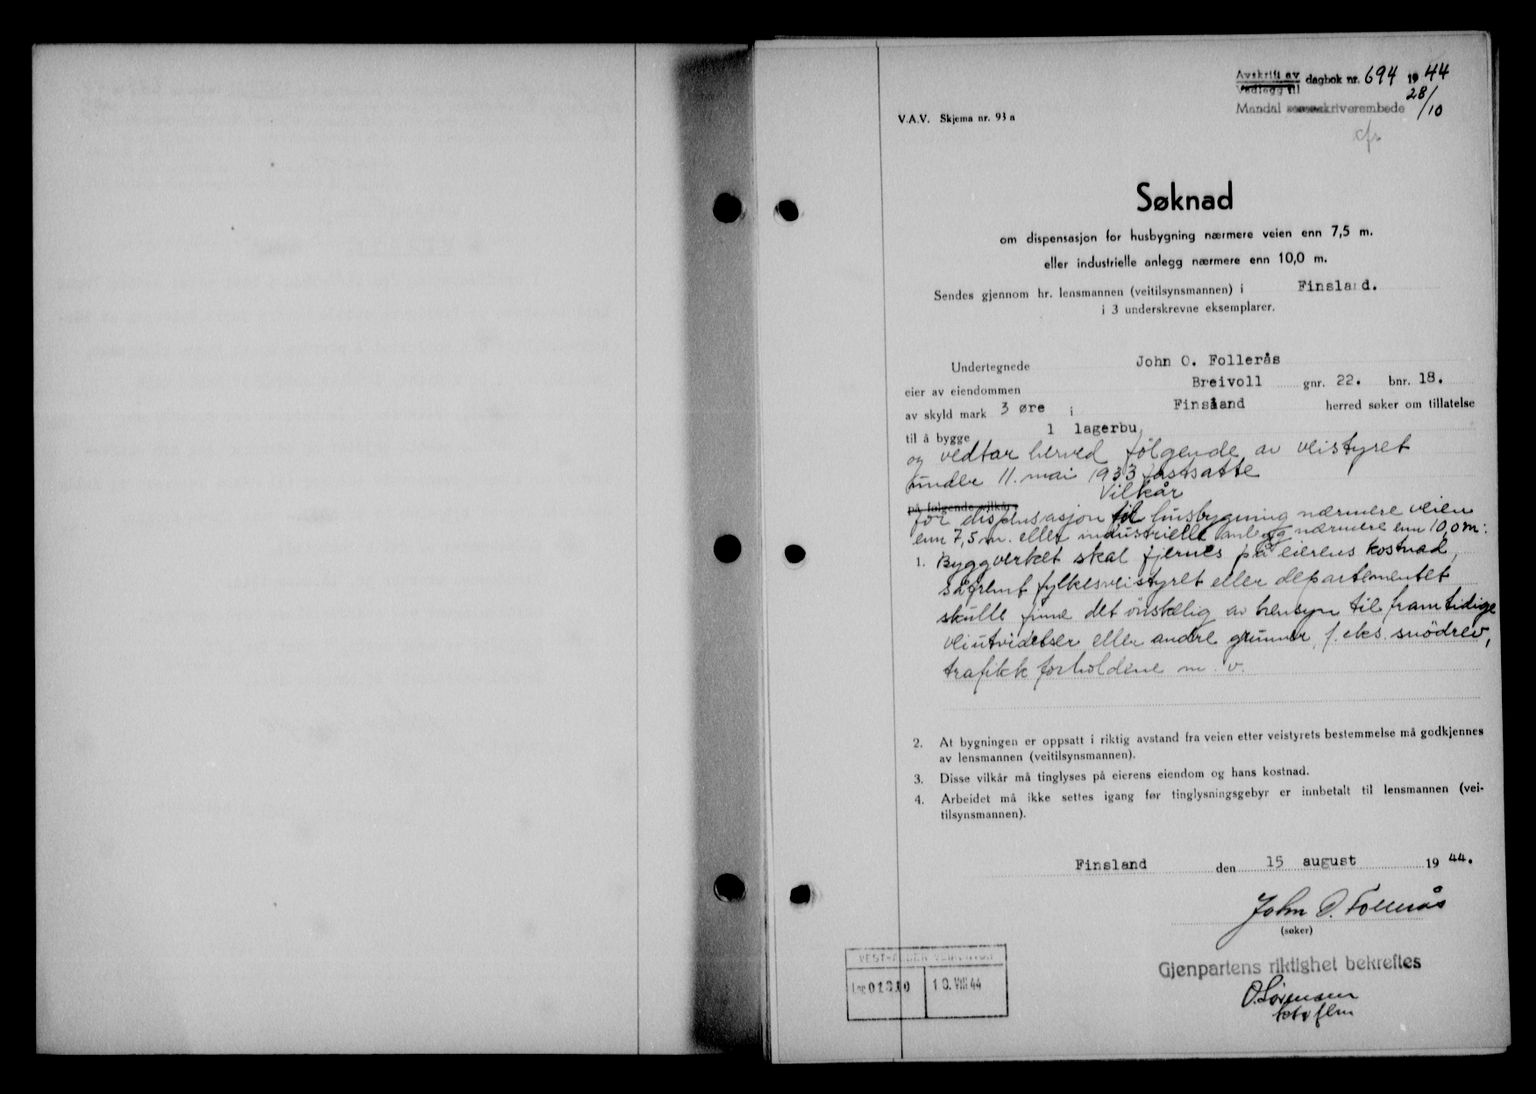 Avskrift av
Vedlegg til dagbok nr. 694 1944
28/10
Mandal sorenskriverembede
V.A.V. Skjema nr. 93 a
cfr
Søknad
om dispensasjon for husbygning nærmere veien enn 7,5 m.
eller industrielle anlegg nærmere enn 10,0 m.
Sendes gjennom hr. lensmannen (veitilsynsmannen) i Finsland.
i 3 underskrevne eksemplarer.
Undertegnede John O. Follerås
eier av eiendommen Breivoll gnr. 22. bnr. 18.
av skyld mark 3 øre i Finsland herred søker om tillatelse
til å bygge 1 lagerbu
og vedtar herved følgende av veistyret
under 11. mai 1933 fastsatte
Vilkår
på følgende vilkår:
for dispensasjon til husbygning nærmere veien
enn 7,5 m. eller industrielle anlegg nærmere enn 10,0 m:
1. Byggverket skal fjernes på eierens kostnad,
såfremt fylkesveistyret eller departementet
skulle finne det ønskelig av hensyn til framtidige
veiutvidelser eller andre grunner, f. eks. snödrev,
trafikk forholdene m. v.
2. At bygningen er oppsatt i riktig avstand fra veien etter veistyrets bestemmelse må godkjennes
av lensmannen (veitilsynsmannen).
3. Disse vilkår må tinglyses på eierens eiendom og hans kostnad.
4. Arbeidet må ikke settes igang før tinglysningsgebyr er innbetalt til lensmannen (vei-
tilsynsmannen).
Finsland den 15 august 1944.
John O. Follerås
(søker)
Gjenpartens riktighet bekreftes
O. Sørensen
VEST-AGDER VEIKONTOR
18. VIII 44